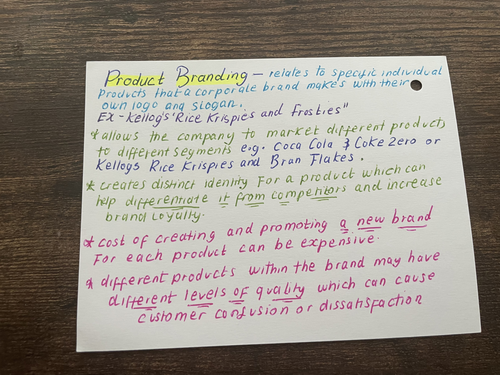 Product Branding - relates to specific individual
products that a corporate brand makes with their
own logo and slogan.
Ex - Kellog's "Rice Krispies and Frosties"
* allows the company to market different products
to different segments e.g. Coca Cola & Coke Zero or
Kellogs Rice Krispies and Bran Flakes.
* creates distinct identity For a product which can
help differentiate it from competitors and increase
brand loyalty.
* cost of creating and promoting a new brand
For each product can be expensive.
* different products within the brand may have
different levels of quality which can cause
customer confusion or dissatisfaction